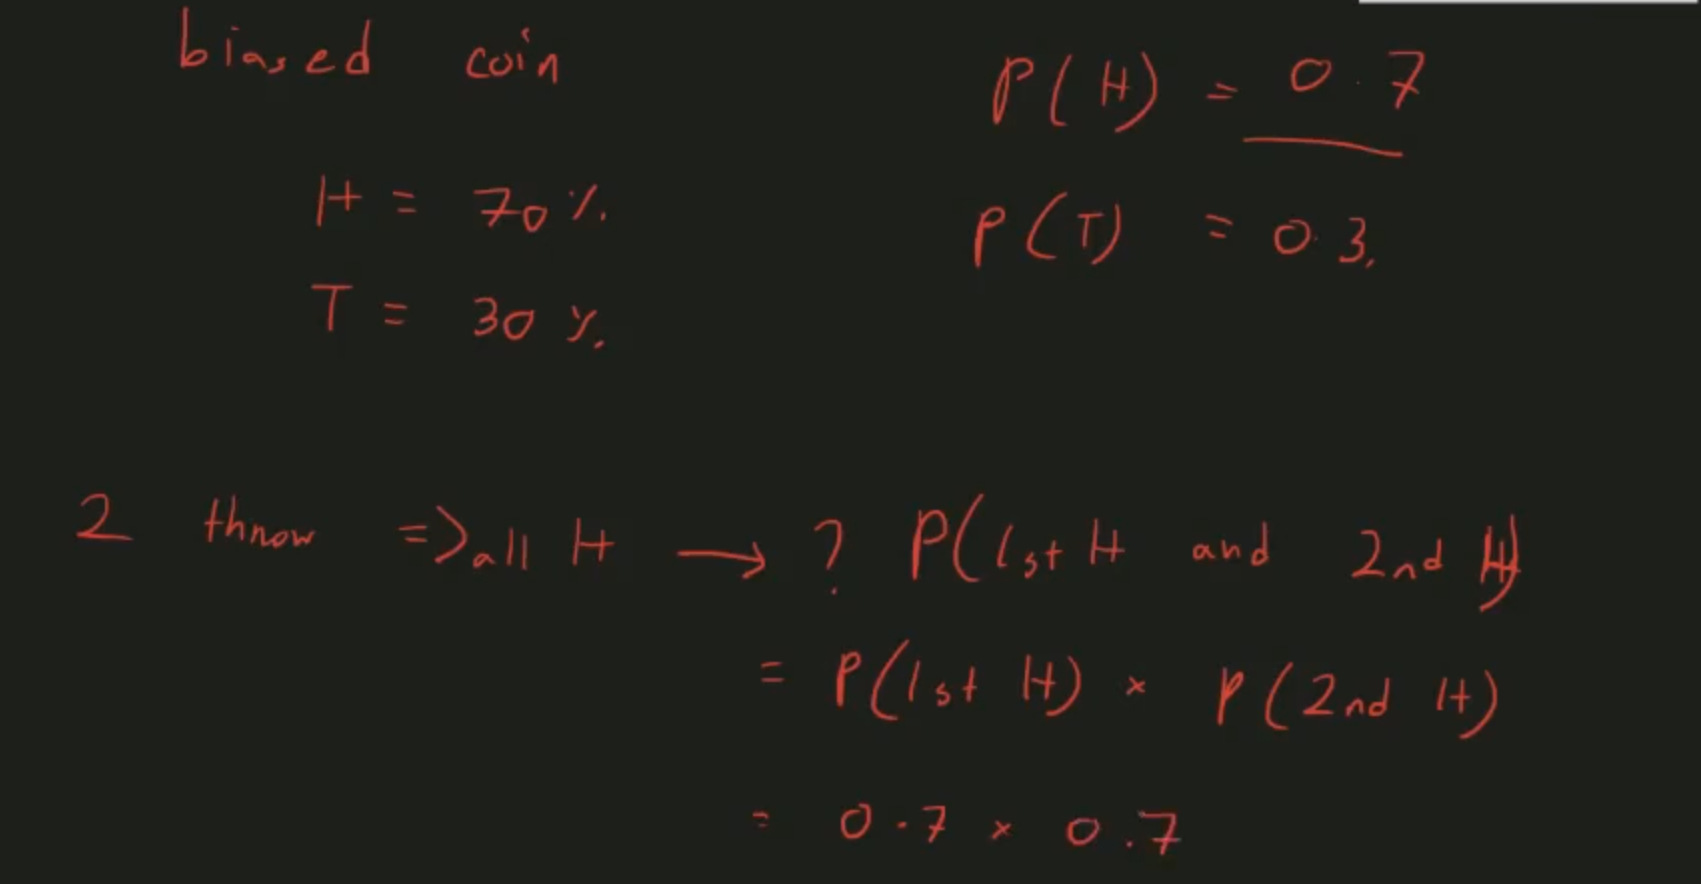 biased coin
P(H) = 0.7
H = 70%
P(T) = 0.3.
T = 30%
2 throw => all H → ? P(1st H and 2nd H)
= P(1st H) × P(2nd H)
= 0.7 × 0.7